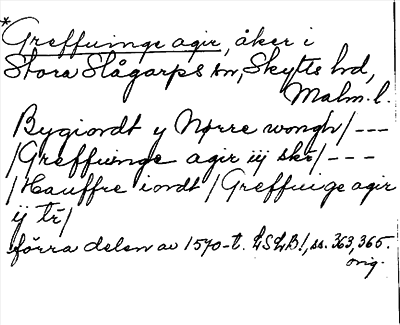 *Greffuinge agir, åker i
Stora Slågarps sn, Skytts hd,
Malm. l.
Bygiordt y Nørre wongh/ ---
/Greffuinge agir iij skr/ ---
/Hauffre iordt/Greffuige agir
ij tr/
förra delen av 1570-t. LSLB!, ss. 363, 365.
orig.